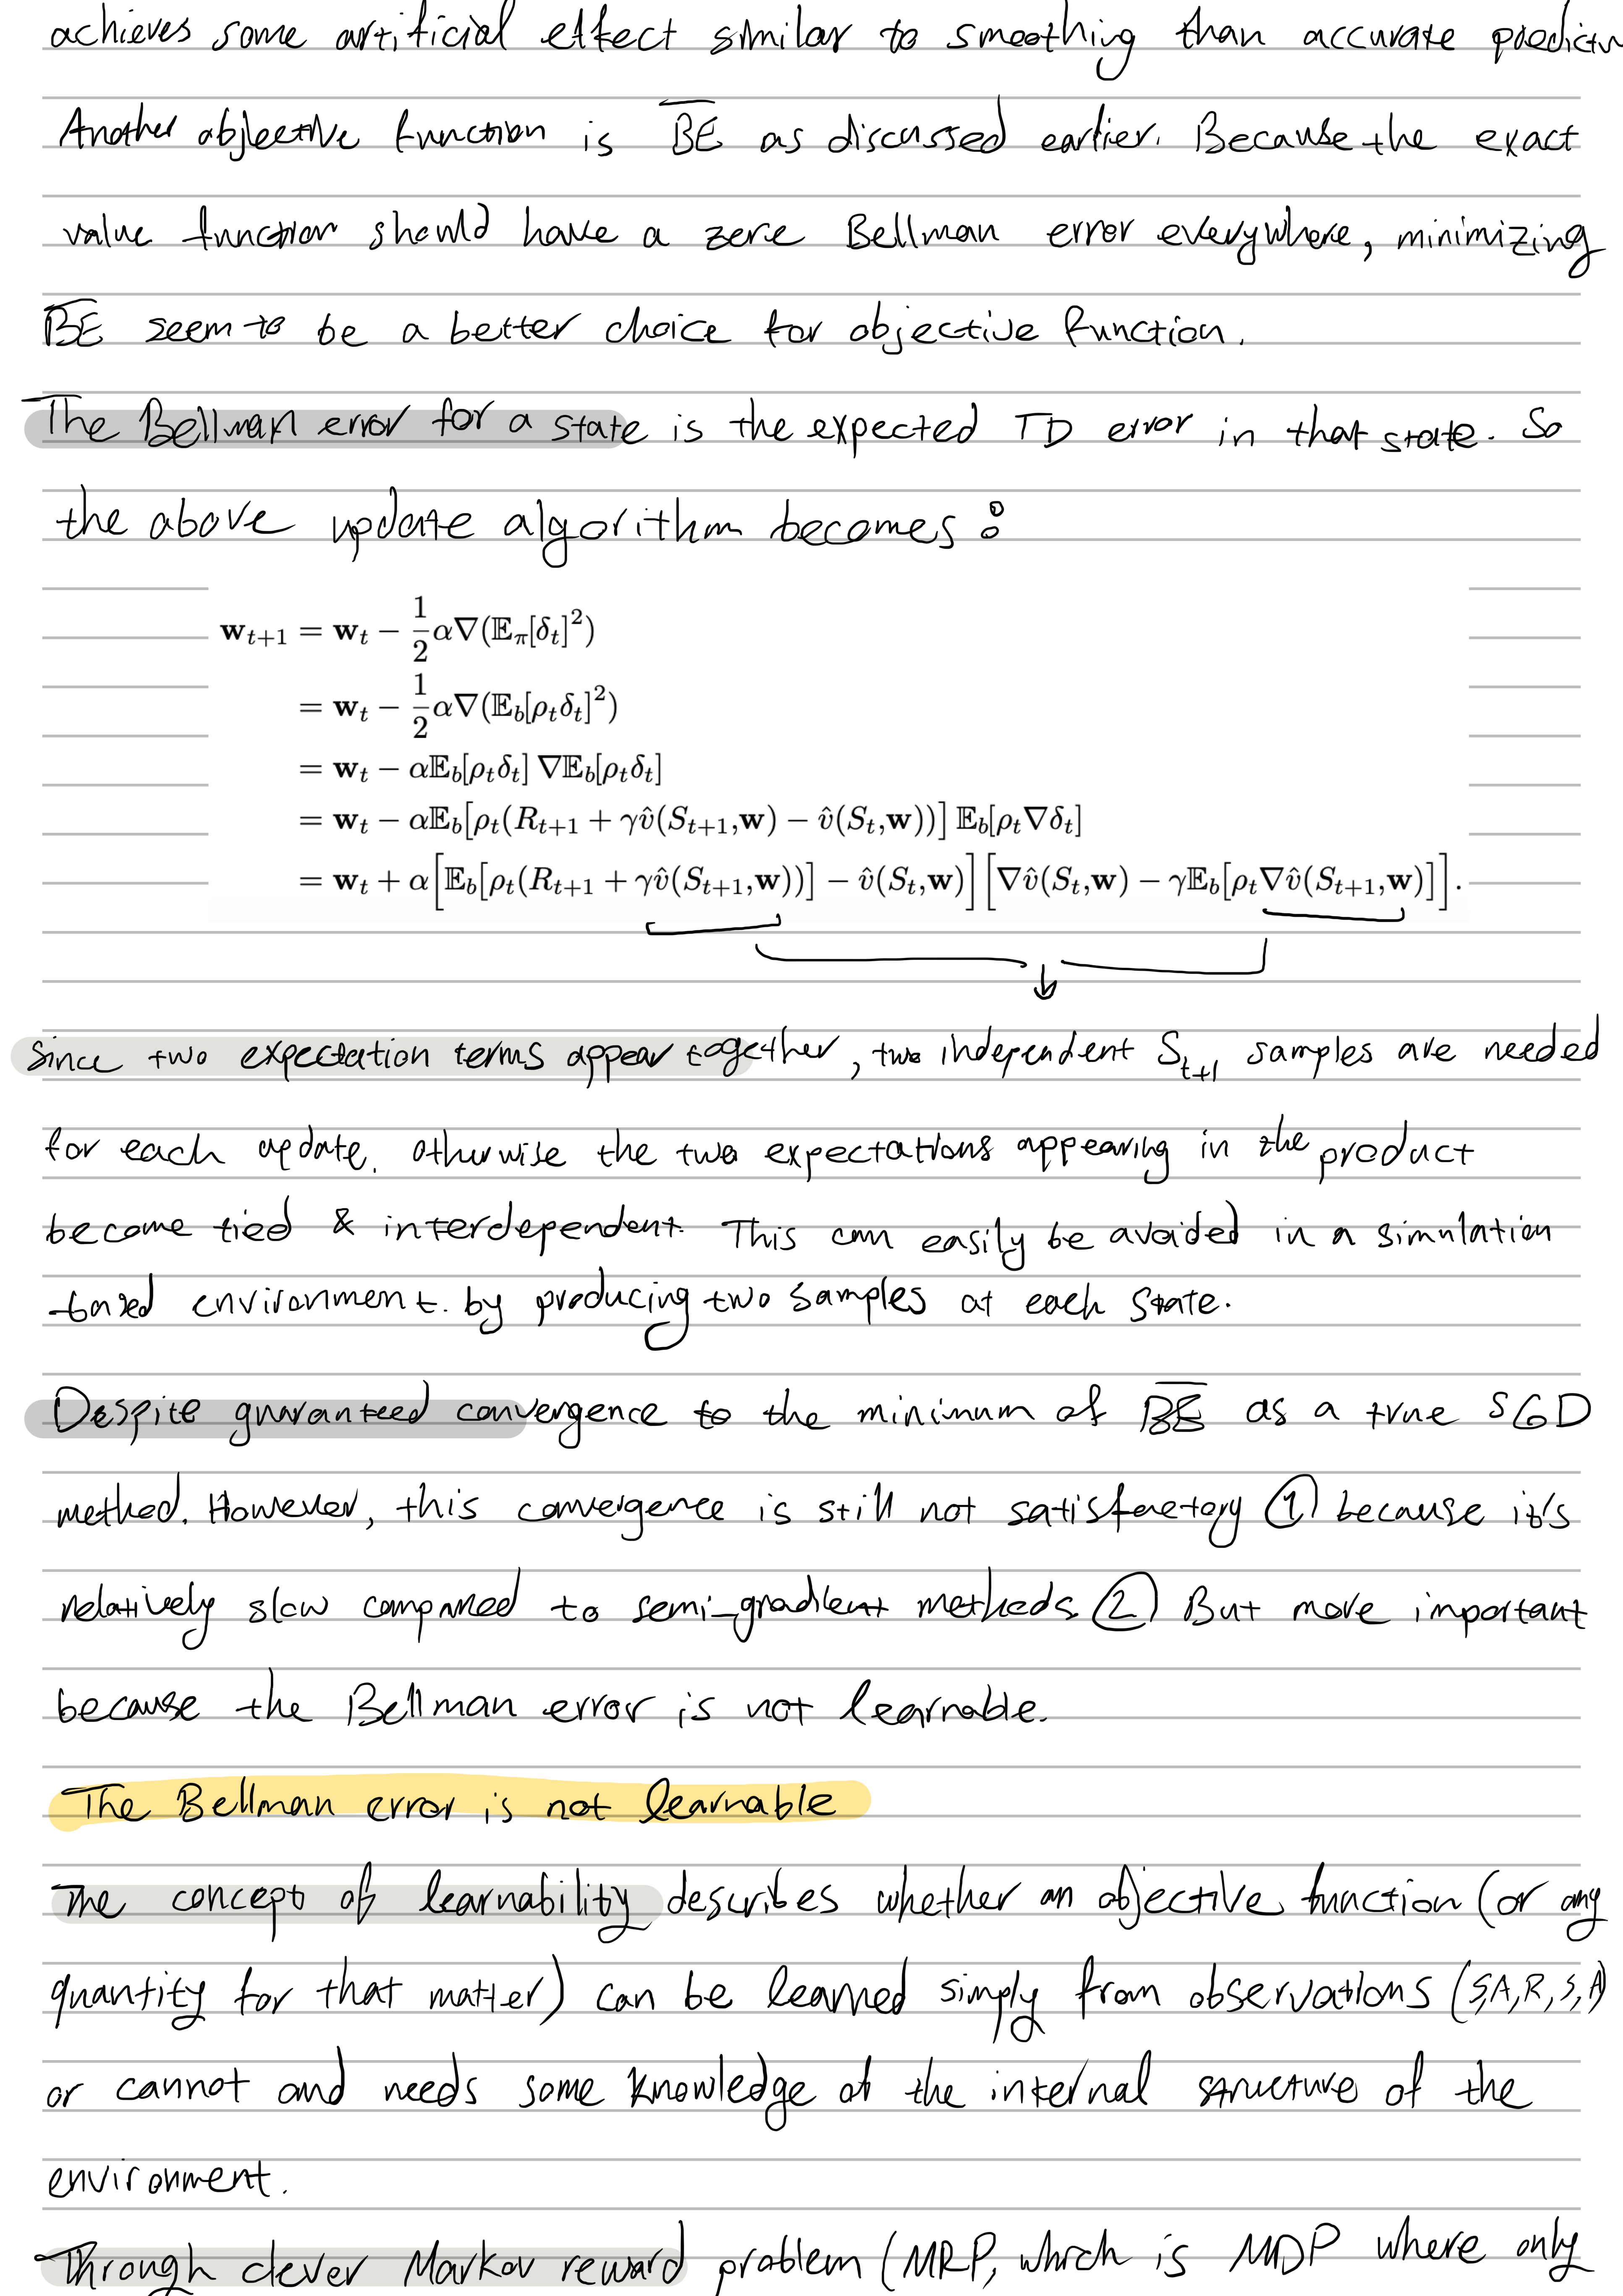 achieves some artificial effect similar to smoothing than accurate predictn
Another objective function is \overline{BE} as discussed earlier. Because the exact
value function should have a zero Bellman error everywhere, minimizing
\overline{BE} seem to be a better choice for objective function.
The Bellman error for a state is the expected TD error in that state. So
the above update algorithm becomes:
w_{t+1} = w_t − \frac{1}{2}α∇(𝔼_π[δ_t]^2)
= w_t − \frac{1}{2}α∇(𝔼_b[ρ_tδ_t]^2)
= w_t − α𝔼_b[ρ_tδ_t] ∇𝔼_b[ρ_tδ_t]
= w_t − α𝔼_b[ρ_t(R_{t+1} + γv̂(S_{t+1},w) − v̂(S_t,w))] 𝔼_b[ρ_t∇δ_t]
= w_t + α[𝔼_b[ρ_t(R_{t+1} + γv̂(S_{t+1},w))] − v̂(S_t,w)][∇v̂(S_t,w) − γ𝔼_b[ρ_t∇v̂(S_{t+1},w)]].
Since two expectation terms appear together, two independent S_{t+1} samples are needed
for each update. otherwise the two expectations appearing in the product
become tied & interdependent. This can easily be avoided in a simulation
based environment. by producing two samples at each state.
Despite guaranteed convergence to the minimum of \overline{BE} as a true SGD
method. However, this convergence is still not satisfactory ① because it's
relatively slow compared to semi-gradient methods. ② But more important
because the Bellman error is not learnable.
The Bellman error is not learnable
The concept of learnability describes whether an objective function (or any
quantity for that matter) can be learned simply from observations (S,A,R,S,A)
or cannot and needs some knowledge of the internal structure of the
environment.
Through clever Markov reward problem (MRP, which is MDP where only